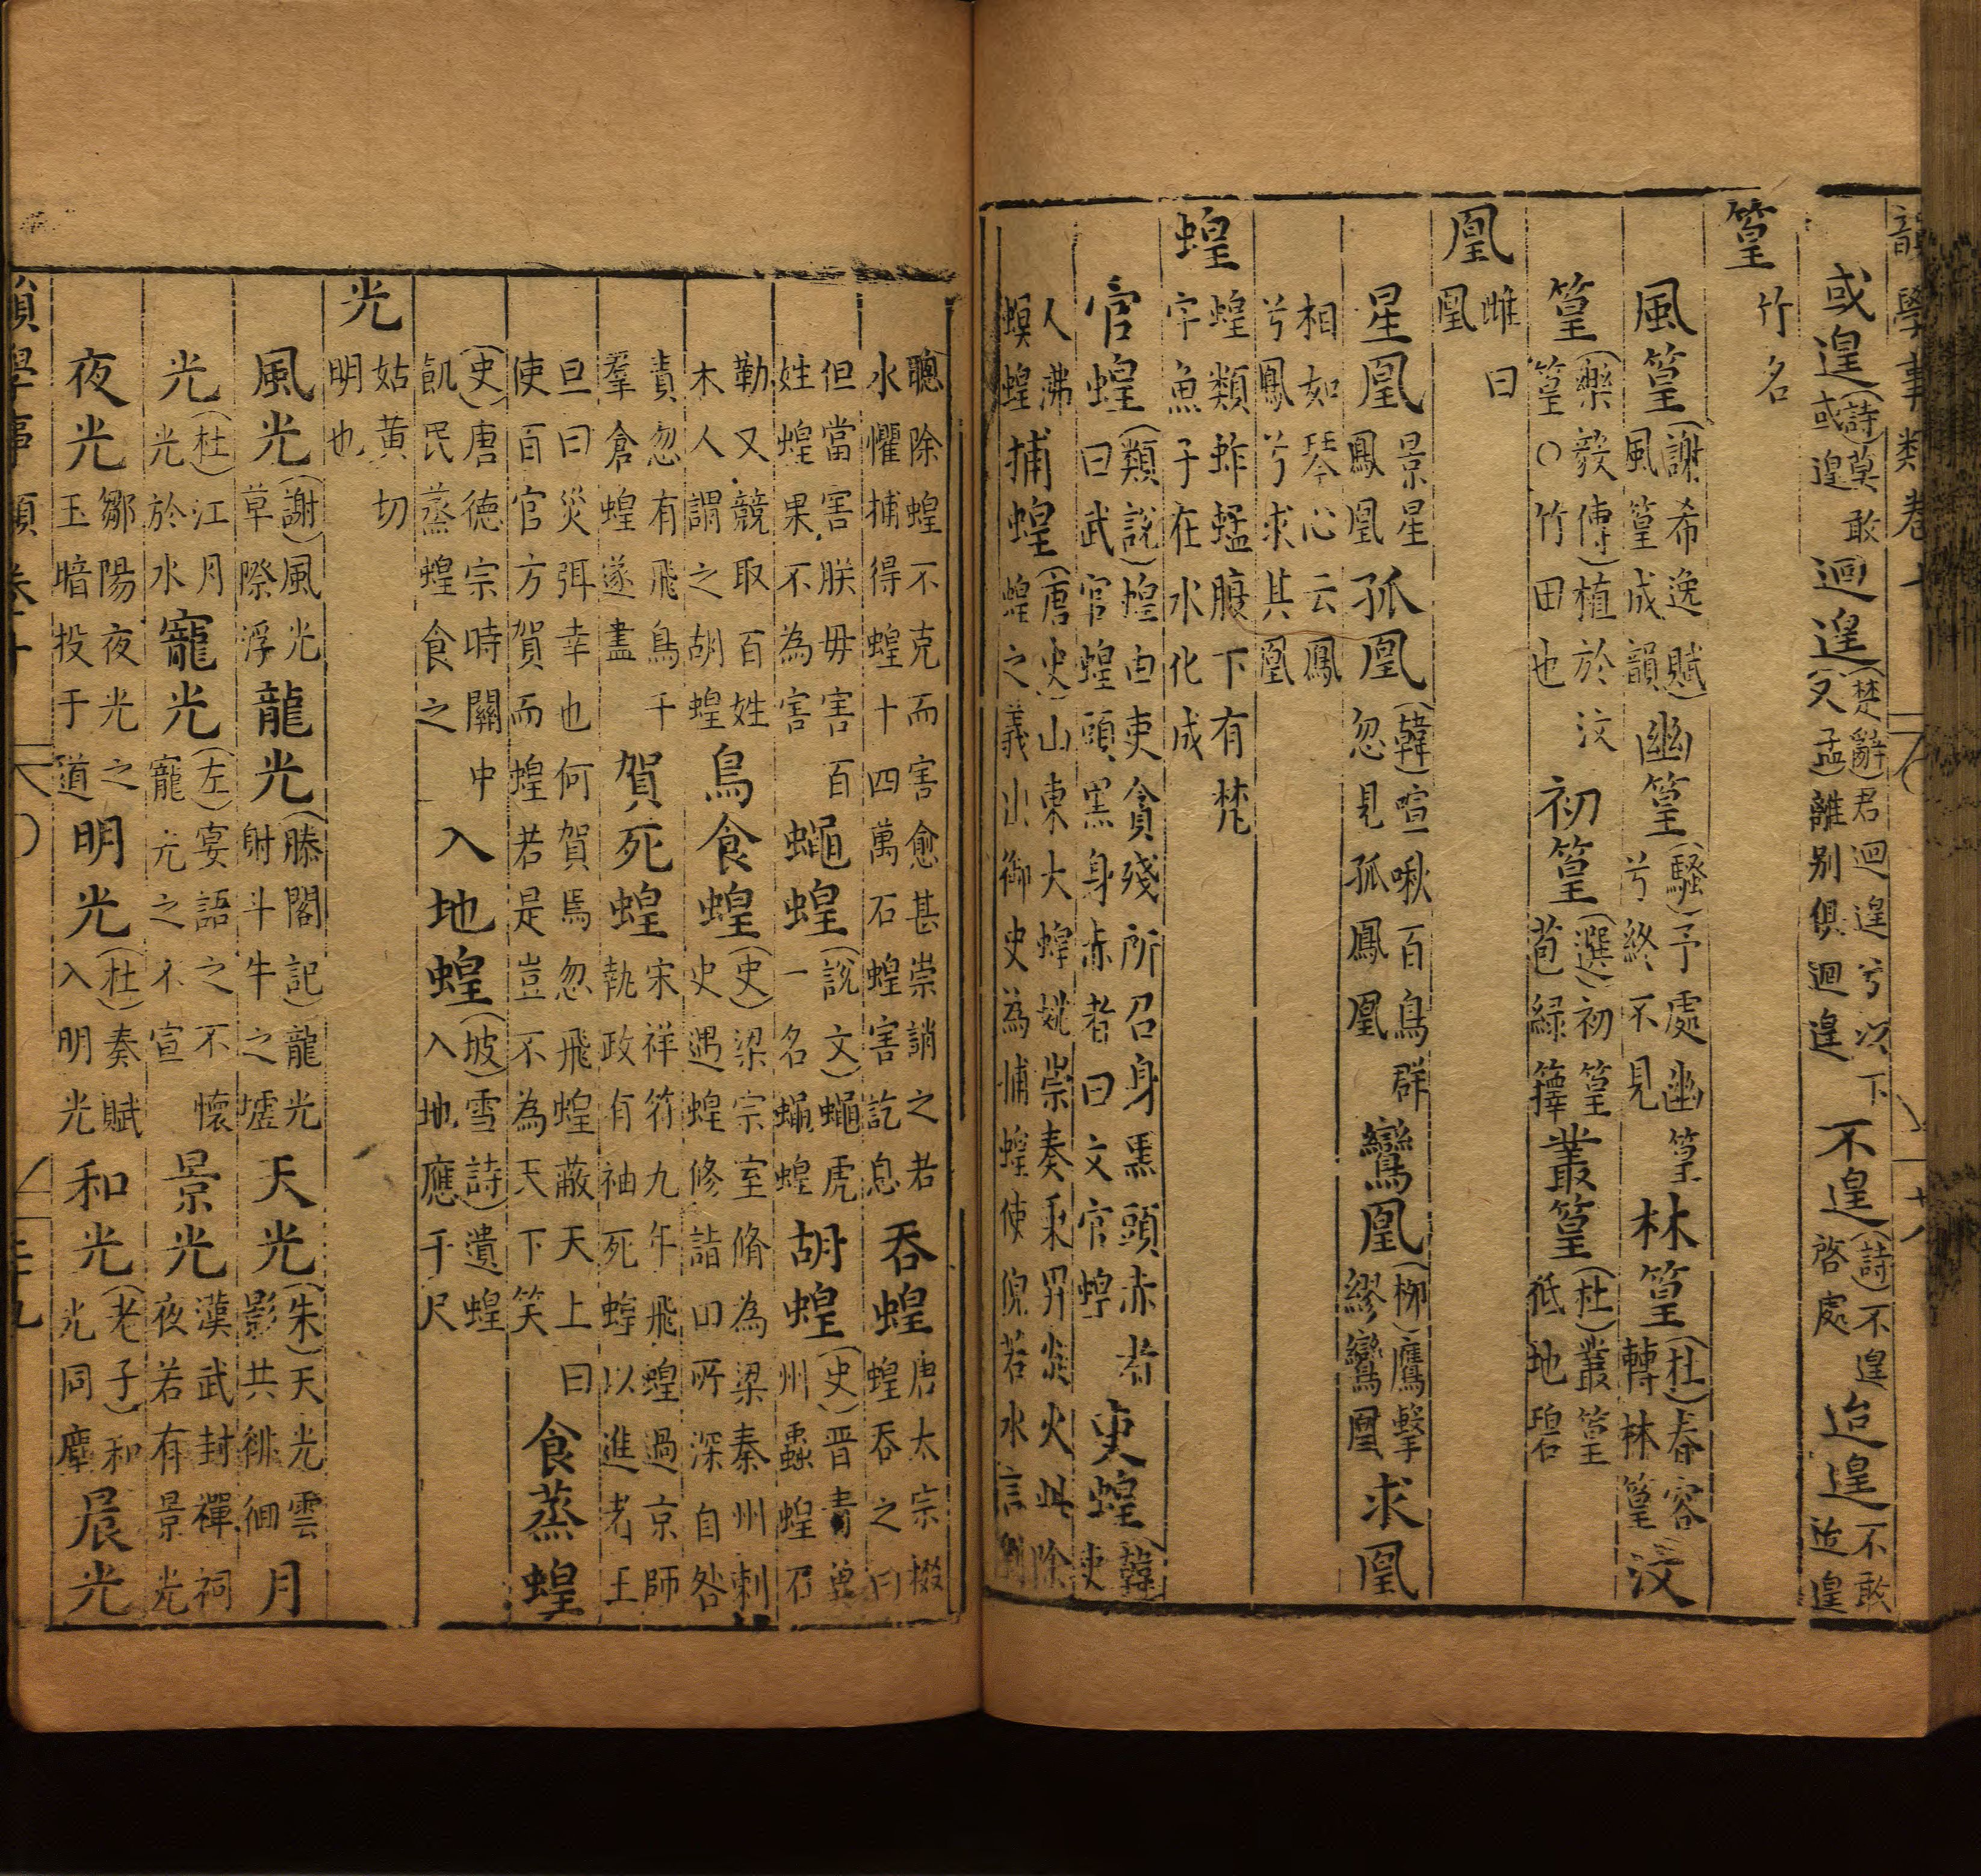 韻學事類卷十
或遑(詩)莫敢或遑 迴遑(楚辭)君迴遑兮以下(又孟)離别俱迴遑 不遑(詩)不遑啓處 迨遑不敢迨遑
篁 竹名
風篁(謝希逸賦)風篁成韻 幽篁(騷)予處幽篁兮終不見 林篁(杜)春容轉林篁 汶
篁(樂毅傳)植於汶篁○竹田也 初篁(選)初篁苞緑籜 叢篁(杜)叢篁低地碧
凰 雌曰凰
星凰 景星鳳凰 孤凰(韓)喧啾百鳥群忽見孤鳳凰 鸞凰(柳)鷹擊繆鸞凰 求凰
相如琴心云鳳兮鳳兮求其凰
蝗 蝗類蚱蜢腹下有梵字魚子在水化成
官蝗(類説)蝗由吏貪殘所召身黑頭赤者曰武官蝗頭黑身赤者曰文官蝗 吏蝗(韓)吏
人沸螟蝗 捕蝗(唐史)山東大蝗姚崇奏秉畀炎火此除蝗之義出御史為捕蝗使倪若水言劉
聰除蝗不克而害愈甚崇誚之若水懼捕得蝗十四萬石蝗害訖息 吞蝗 唐太宗掇蝗吞之曰
但當害朕毋害百姓蝗果不為害 蠅蝗(說文)蠅虎一名蠅蝗 胡蝗(史)晋青兗州蟲蝗石
勒又競取百姓木人謂之胡蝗 鳥食蝗(史)梁宗室脩為梁秦州刺史遇蝗修詣田所深自咎
責忽有飛鳥千羣倉蝗遂盡 賀死蝗 宋祥符九年飛蝗過京師執政有袖死蝗以進者王
旦曰災弭幸也何賀焉忽飛蝗蔽天上曰使百官方賀而蝗若是豈不為天下笑 食蒸蝗
(史)唐徳宗時關中飢民蒸蝗食之 入地蝗(坡)雪詩(遺蝗入地應千尺
光 姑黄切明也
風光(謝)風光草際浮 龍光(滕閣記)龍光射斗牛之墟 天光(朱)天光雲影共徘徊 月
光(杜)江月光於水 寵光(左)宴語之不懷寵光之不宣 景光 漢武封禪祠夜若有景光
夜光 鄒陽夜光之玉暗投于道 明光(杜)奏賦入明光 和光(老子)和光同塵 晨光
韻學事類卷十